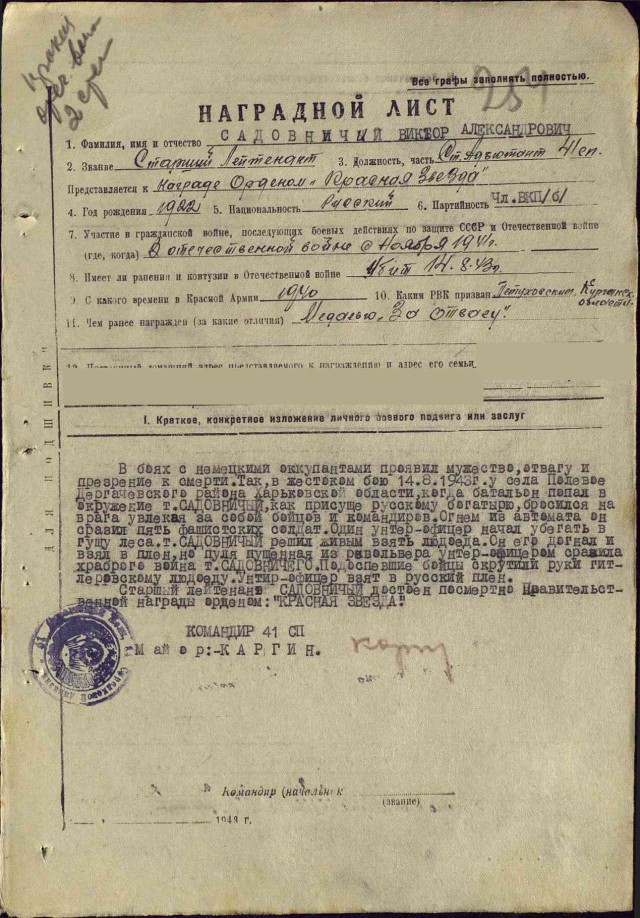 Все графы заполнять полностью.
254
НАГРАДНОЙ ЛИСТ
1. Фамилия, имя и отчество САДОВНИЧЫЙ ВИКТОР АЛЕКСАНДРОВИЧ
2. Звание Старший Лейтенант 3. Должность, часть Ст. Адъютант 41 сп.
Представляется к Награде Орденом „Красная Звезда"
4. Год рождения 1922 5. Национальность Русский 6. Партийность Чл.ВКП/б/
7. Участие в гражданской войне, последующих боевых действиях по защите СССР и Отечественной войне
(где, когда) В отечественной войне с Ноября 1941г.
8. Имеет ли ранения и контузии в Отечественной войне Убит 14.8.43г.
9. С какого времени в Красной Армии 1940 10. Каким РВК призван Петуховским, Курганск. области.
11. Чем ранее награжден (за какие отличия) Медалью „За отвагу".
12. Постоянный домашний адрес представляемого к награждению и адрес его семьи
ДЛЯ ПОДШИВКИ
I. Краткое, конкретное изложение личного боевого подвига или заслуг
В боях с немецкими оккупантами проявил мужество,отвагу и
презрение к смерти.Так,в жестоком бою 14.8.1943г.у села Полевое
Дергачевского района Харьковской области,когда батальон попал в
окружение т.САДОВНИЧЫЙ,как присуще русскому богатырю,бросился на
врага увлекая за собой бойцов и командиров.Огнем из автомата он
сразил пять фашистских солдат.Один унтер-офицер начал убегать в
гущу леса.т.САДОВНИЧЫЙ решил живым взять людоеда.Он его догнал и
взял в плен,но пуля пущенная из револьвера унтер-офицером сразила
храброго война т.САДОВНИЧЕГО.Подоспевшие бойцы скрутили руки гит-
леровскому людоеду.Унтир-офицер взят в русский плен.
Старшый лейтенант САДОВНИЧЫЙ достоен посмертно Правительст-
венной награды орденом:"КРАСНАЯ ЗВЕЗДА".
КОМАНДИР 41 СП
Майор:-КАРГИН.
Командир (начальник
(звание)
194 г.